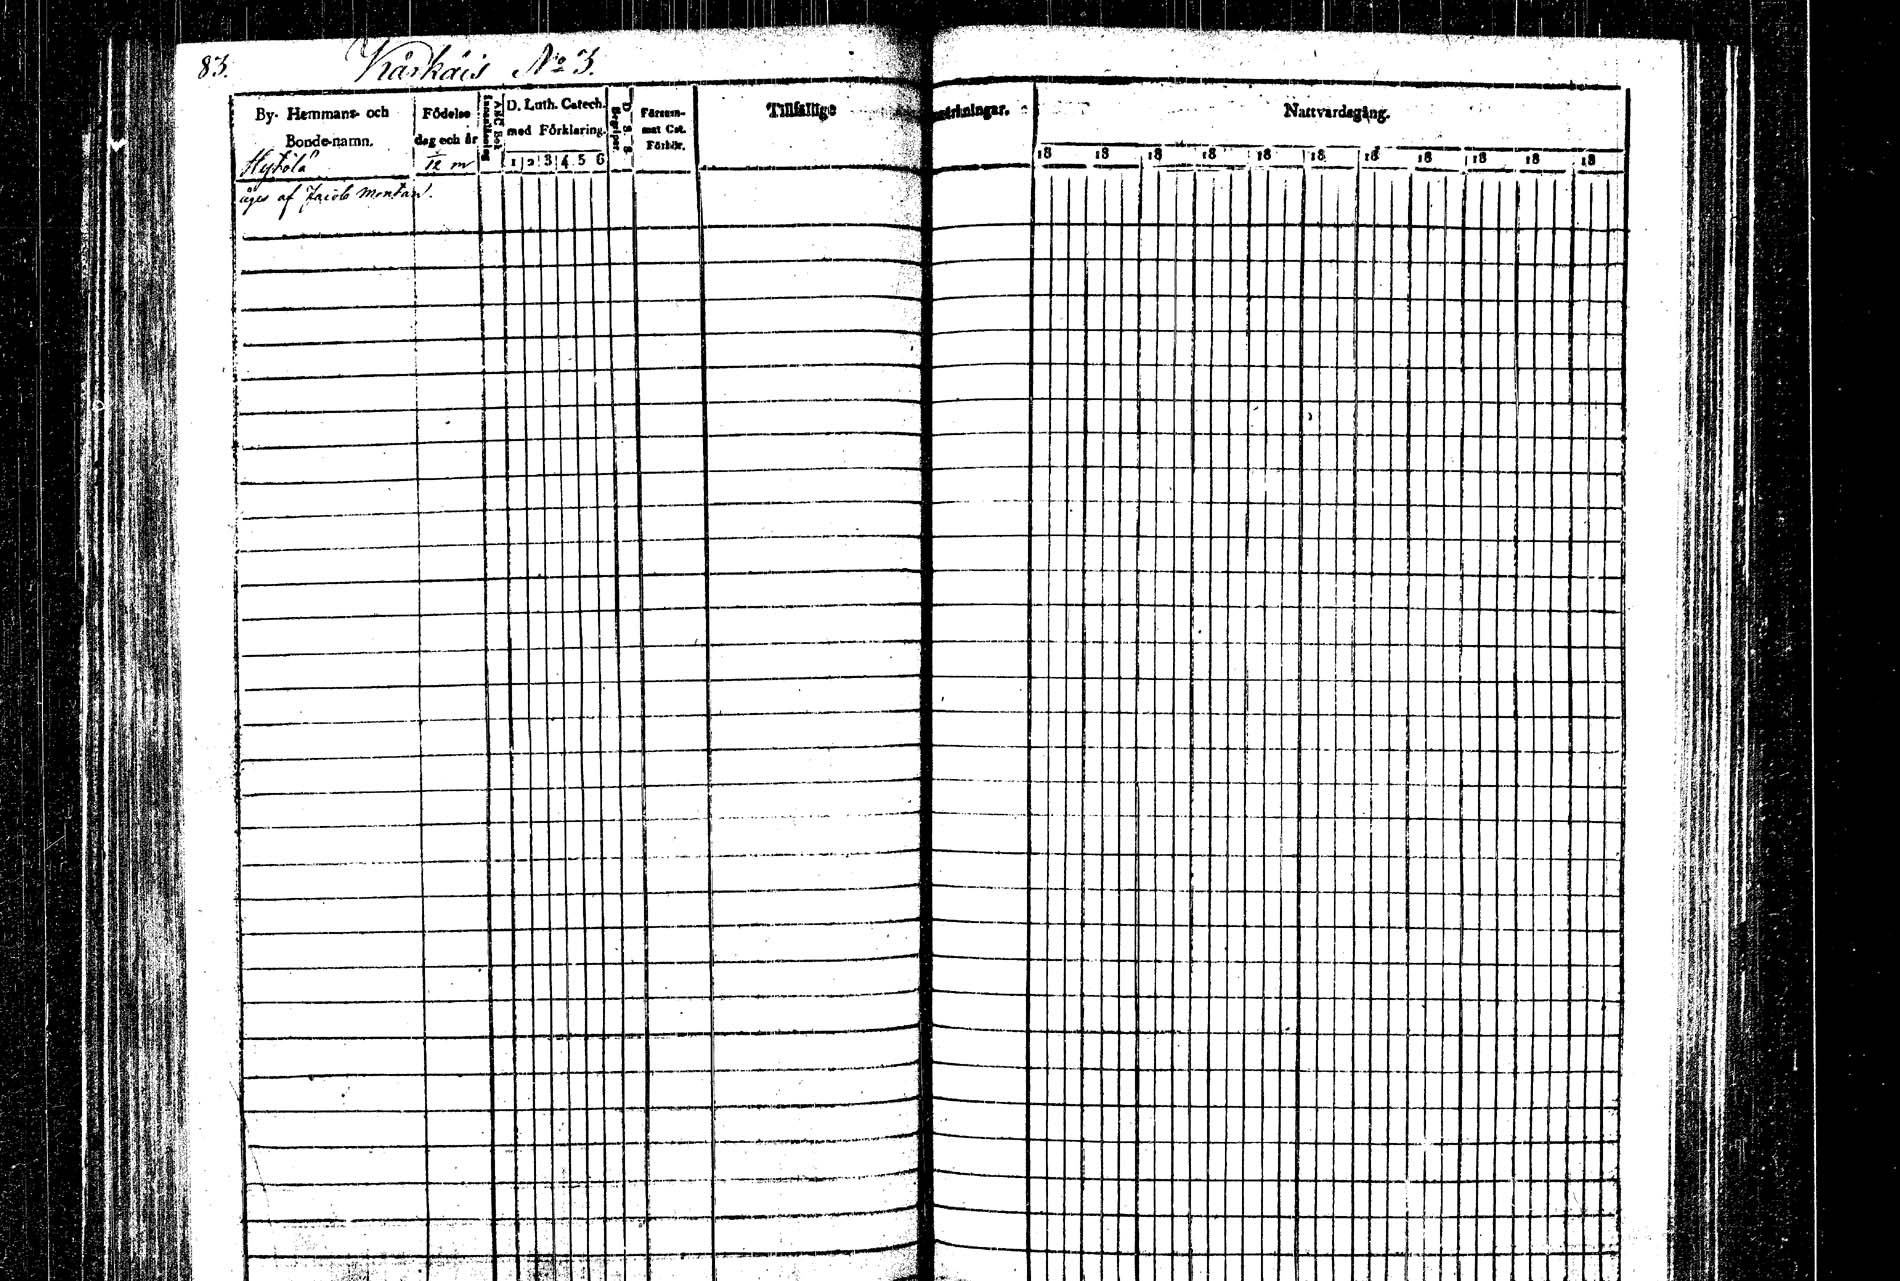 83. Kårkäis No 3.
By- Hemmans- och Bonde-namn.
Födelse dag och år
A B C Bok Innanläsning
D. Luth. Catech. med Förklaring.
1 2 3 4 5 6
D. S. S. Begriper
Försum- mat Cat. Förhör.
Tillfällige
Nattvardsgång.
Hytölä
1/12 m
18 18 18 18 18 18 18 18 18 18 18
äges af Jacob Montan.